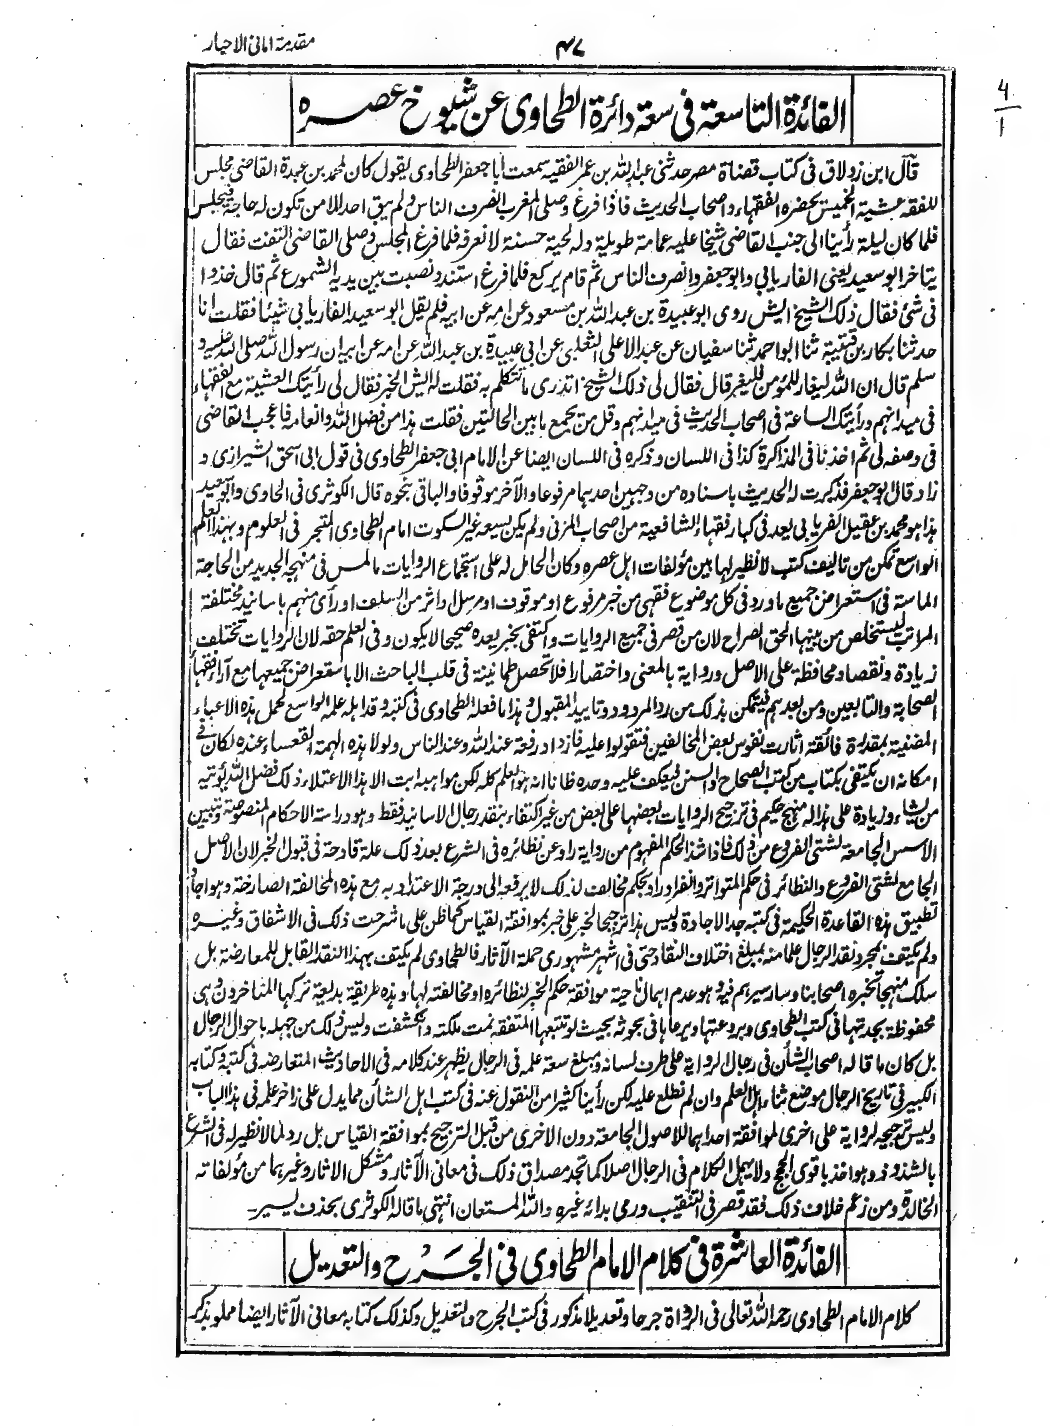 مقدمة امانی الاحبار
۴۷
الفائدة التاسعة فی سعة دائرة الطحاوی عن شیوخ عصره
قال ابن زولاق فی کتاب قضاة مصر حدثنی عبدالله بن عمر الفقیه سمعت ابا جعفر الطحاوی یقول کان لمحمد بن عبدة القاضی مجلس
للفقه عشیة الخمیس یحضره الفقهاء واصحاب الحدیث فاذا فرغ وصلی المغرب انصرف الناس ولم یبق احد الا من تکون له حاجة فیجلس
فلما کان لیلة رأینا الی جنب القاضی شیخا علیه عمامة طویلة وله لحیة حسنة لا نعرفه فلما فرغ المجلس وصلی القاضی التفت فقال
یتاخر ابو سعید یعنی الفاریابی وابو جعفر وانصرف الناس ثم قام یرکع فلما فرغ استند ونصبت بین یدیه الشموع ثم قال خذوا
فی شئ فقال ذلک الشیخ ایش روی ابو عبیدة بن عبدالله بن مسعود عن امه عن ابیه فلم یقل ابو سعید الفاریابی شیئا فقلت انا
حدثنا بکار بن قتیبة ثنا ابو احمد ثنا سفیان عن عبد الاعلی الثعلبی عن ابی عبیدة بن عبدالله عن امه عن ابیه ان رسول الله صلی الله علیه و
سلم قال ان الله لیغار للمؤمن فلیغر قال فقال لی ذلک الشیخ اتدری ما تتکلم به فقلت له ایش الخبر فقال لی رأیتک العشیة مع الفقهاء
فی میدانهم ورأیتک الساعة فی اصحاب الحدیث فی میدانهم وقل من یجمع ما بین الحالتین فقلت هذا من فضل الله وانعامه فاعجب القاضی
فی وصفه لی ثم اخذنا فی المذاکرة کذا فی اللسان وذکره فی اللسان ایضا عن الامام ابی جعفر الطحاوی فی قول ابی اسحق الشیرازی و
زاد قال ابو جعفر فذکرت له الحدیث باسناده من وجهین احدهما مرفوعا والآخر موقوفا والباقی بنحوه قال الکوثری فی الحاوی وابو سعید
هذا هو محمد بن عقیل الفریابی یعد فی کبار فقهاء الشافعیة من اصحاب المزنی ولم یکن یسعه غیر السکوت امام الطحاوی المتبحر فی العلوم وبهذا العلم
الواسع تمکن من تالیف کتب لا نظیر لها بین مؤلفات اهل عصره وکان الحامل له علی استجماع الروایات ما لمس فی منهجه الجدید من الحاجة
الماسة فی استعراض جمیع ما ورد فی کل موضوع فقهی من خبر مرفوع او موقوف او مرسل واثر من السلف او رأی منهم باسانید مختلفة
المراتب لیستخلص من بینها الحق الصراح لان من قصر فی جمیع الروایات واکتفی بخبر یعده صحیحا لا یکون وفی العلم حقه لان الروایات تختلف
زیادة ونقصا ومحافظة علی الاصل وروایة بالمعنی واختصارا فلا تحصل طمانینة فی قلب الباحث الا باستعراض جمیعها مع آراء فقهاء
الصحابة والتابعین ومن بعدهم فیتمکن بذلک من رد المردود وتایید المقبول وهذا ما فعله الطحاوی فی کتبه وقد اهله علمه الواسع لحمل هذه الاعباء
المضنیة بمقدرة فائقة اثارت نفوس بعض المخالفین فتقولوا علیه فازداد رفعة عندالله وعند الناس ولولا هذه الهمة القعساء عنده لکان فی
امکانه ان یکتفی بکتاب من کتب الصحاح والسنن لیعکف علیه وحده ظانا انه هو العلم کله لکن مواهبه ابت الا هذا الاعتلاء ذلک فضل الله یؤتیه
من یشاء وزیادة علی هذا له منهج حکیم فی ترجیح الروایات بعضها علی بعض من غیر اکتفاء بنقد رجال الاسانید فقط وهو دراسة الاحکام المنصوصة وتبیین
الاسس الجامعة لشتی الفروع من ذلک فاذا شذ الحکم المفهوم من روایة راو عن نظائره فی الشرع یعد ذلک علة قادحة فی قبول الخبر لان الاصل
الجامع لشتی الفروع والنظائر فی حکم المتواتر وانفراد راو بحکم مخالف لذلک لا یرفعه الی درجة الاعتداد به مع هذه المخالفة الصارخة وهو اجاد
تطبیق هذه القاعدة الحکیمة فی کتبه جد الاجادة ولیس هذا ترجیحا لخبر علی خبر بموافقة القیاس کما ظن علی ما شرحت ذلک فی الاشفاق وغیره
ولم یکتف بمجرد نقد الرجال علما منه بمبلغ اختلاف النقاد حتی فی اشهر مشهوری حملة الآثار فالطحاوی لم یکتف بهذا النقد القابل للمعارضة بل
سلک منهجا تخیره اصحابنا وسار سیرهم فیه وهو عدم اهمال ناحیة موافقة حکم الخبر لنظائره او مخالفته لها وهذه طریقة بدیعة ترکها المتاخرون وهی
محفوظة بجدتها فی کتب الطحاوی وبروعتها ویرعاها فی بحوثه بحیث لو تتبعها المتفقه نمت ملکته واکتشفت ولیس ذلک من جهله باحوال الرجال
بل کان ما قاله اصحاب الشأن فی رجال الروایة علی طرف لسانه ومبلغ سعة علمه فی الرجال یظهر عند کلامه فی الاحادیث المتعارضة فی کتبه وکتابه
الکبیر فی تاریخ الرجال موضع ثناء اهل العلم وان لم نطلع علیه لکن رأینا کثیرا من النقول عنه فی کتب اهل الشأن مما یدل علی زاخر علمه فی هذا الباب
ولیس ترجیحه لروایة علی اخری لموافقة احداهما للاصول الجامعة دون الاخری من قبل الترجیح بموافقة القیاس بل رد لما لا نظیر له فی الشرع
بالشذوذ وهو اخذ باقوی الحجج ولا یهمل الکلام فی الرجال اصلا کما تجد مصداق ذلک فی معانی الآثار ومشکل الآثار وغیرهما من مؤلفاته
الخالدة ومن زعم خلاف ذلک فقد قصر فی التنقیب ورمی بدائه غیره والله المستعان انتهی ما قاله الکوثری بحذف یسیر۔
الفائدة العاشرة فی کلام الامام الطحاوی فی الجرح والتعدیل
کلام الامام الطحاوی رحمه الله تعالی فی الرواة جرحا وتعدیلا مذکور فی کتب الجرح والتعدیل وکذلک کتابه معانی الآثار ایضا مملو بذکر